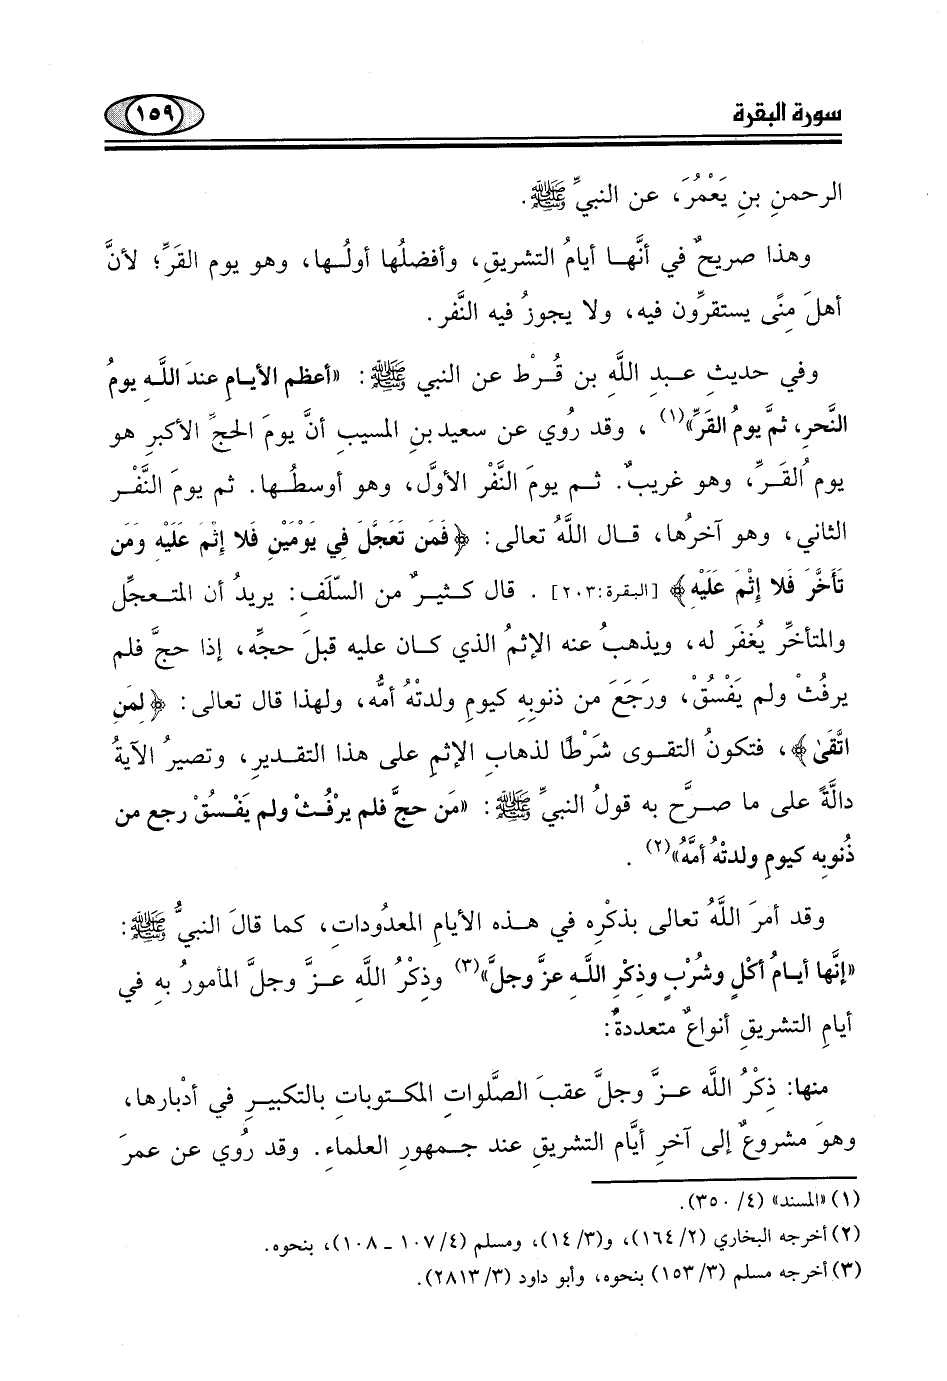 سورة البقرة ١٥٩
الرحمنِ بنِ يَعْمُرَ، عن النبيِّ ﷺ.
وهذا صريحٌ في أنَّهـا أيامُ التشريقِ، وأفضلُها أولُـها، وهو يوم القَرِّ؛ لأنَّ
أهلَ مِنًى يستقرِّون فيه، ولا يجوزُ فيه النَّفر.
وفي حديثِ عبـدِ اللَّهِ بن قُـرْط عن النبي ﷺ: «أعظم الأيـامِ عندَ اللَّـهِ يومُ
النَّحرِ، ثمَّ يومُ القَرِّ»(١) ، وقد رُوي عن سعيدِ بنِ المسيبِ أنَّ يومَ الحجِّ الأكبرِ هو
يومُ القَـرِّ، وهو غريبٌ. ثـم يومَ النَّفْرِ الأوَّل، وهو أوسطُـها. ثم يومَ النَّفْـرِ
الثاني، وهو آخرُها، قـال اللَّهُ تعالى: ﴿فَمَن تَعَجَّلَ فِي يَوْمَيْنِ فَلا إِثْمَ عَلَيْهِ وَمَن
تَأَخَّرَ فَلا إِثْمَ عَلَيْهِ﴾ [البقرة:٢٠٣] . قال كـثيـرٌ من السَّلَفِ: يريدُ أن المتـعجلِّ
والمتأخرِّ يُغفَر له، ويذهبُ عنه الإثمُ الذي كـان عليه قبلَ حجِّه، إذا حجَّ فلم
يرفُثْ ولم يَفْسُقْ، ورَجَعَ من ذنوبِهِ كيومِ ولدتْهُ أمُّه، ولهذا قال تعالى: ﴿لِمَنِ
اتَّقَىٰ﴾، فتكونُ التقوى شَرْطًا لذهابِ الإثمِ على هذا التقـديرِ، وتصيرُ الآيةُ
دالَّةً على ما صـرَّح به قولُ النبيِّ ﷺ: «مَن حجَّ فلم يرفُثْ ولم يَفْسُقْ رجع من
ذُنوبِه كيومِ ولدتْهُ أمَّهُ»(٢) .
وقد أمرَ اللَّهُ تعالى بذكْرِه في هـذه الأيامِ المعدُودات، كما قالَ النبيُّ ﷺ:
«إنَّها أيـامُ أكْلٍ وشُرْبٍ وذكْرِ اللَّـهِ عزَّ وجلَّ»(٣) وذكْرُ اللَّهِ عـزَّ وجلَّ المأمورُ بهِ في
أيامِ التشريقِ أنواعٌ متعددةٌ:
منها: ذِكْرُ اللَّه عـزَّ وجلَّ عقبَ الصَّلواتِ المكتوباتِ بالتكبيـرِ في أدْبارها،
وهوَ مشروعٌ إلى آخرِ أيَّام التشريقِ عند جـمهورِ العلماءِ. وقد رُوي عن عمرَ
(١) «المسند» (٤/ ٣٥٠).
(٢) أخرجه البخاري (٢/ ١٦٤)، و(٣/ ١٤)، ومسلم (٤/ ١٠٧ ـ ١٠٨)، بنحوه.
(٣) أخرجه مسلم (٣/ ١٥٣) بنحوه، وأبو داود (٣/ ٢٨١٣).